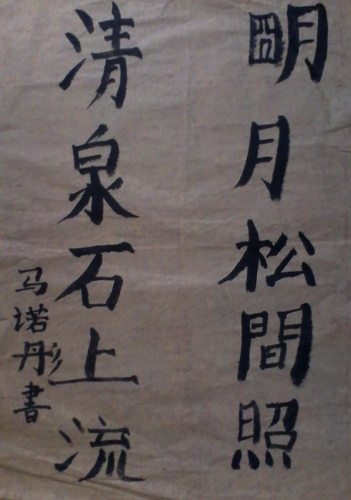 朙月松間照
清泉石上流
马诺彤書